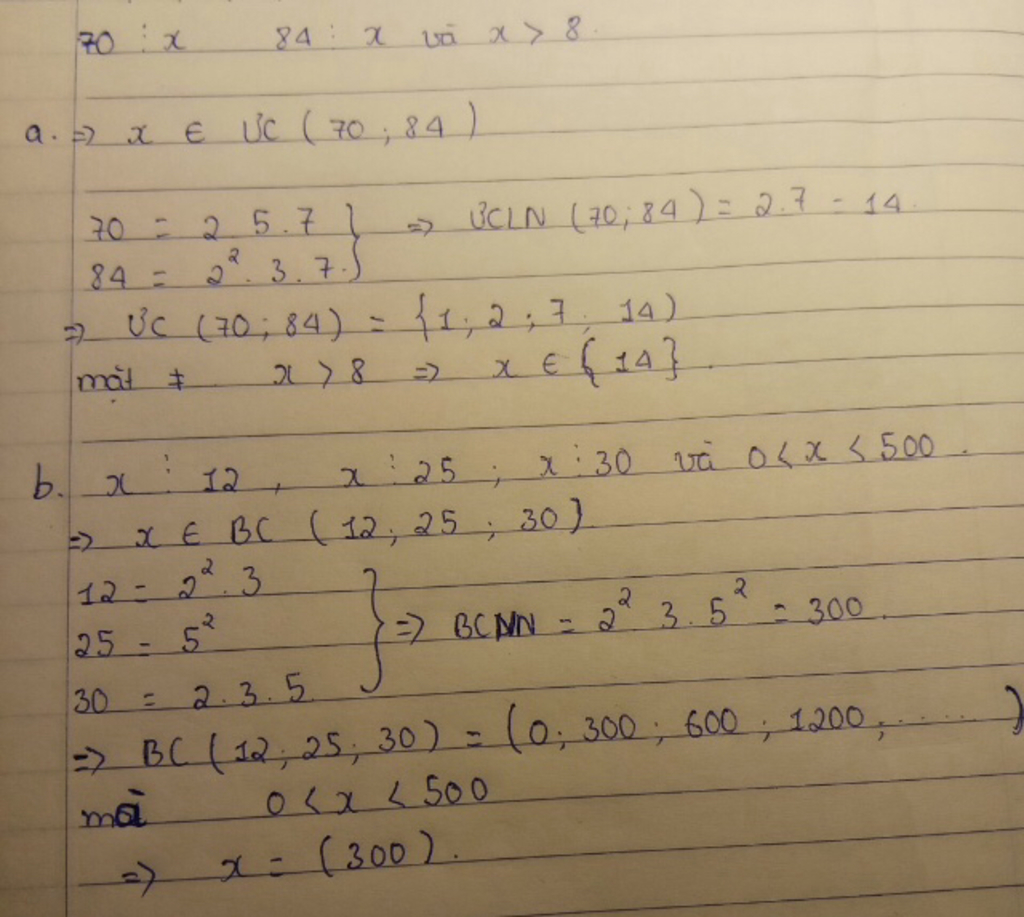 70 ⋮ x 84 ⋮ x và x > 8.
a. => x ∈ ƯC ( 70 ; 84 )
70 = 2 5.7 } => ƯCLN (70; 84) = 2.7 = 14.
84 = 2². 3. 7.
=> ƯC (70; 84) = {1; 2; 7; 14)
mặt ≠ x > 8 => x ∈ {14}.
b. x ⋮ 12, x ⋮ 25; x ⋮ 30 và 0 < x < 500.
=> x ∈ BC (12; 25; 30)
12 = 2². 3
25 = 5² } => BCNN = 2² 3. 5² = 300.
30 = 2.3.5
=> BC (12; 25; 30) = (0; 300; 600; 1200; ......)
mà 0 < x < 500
=> x = (300).